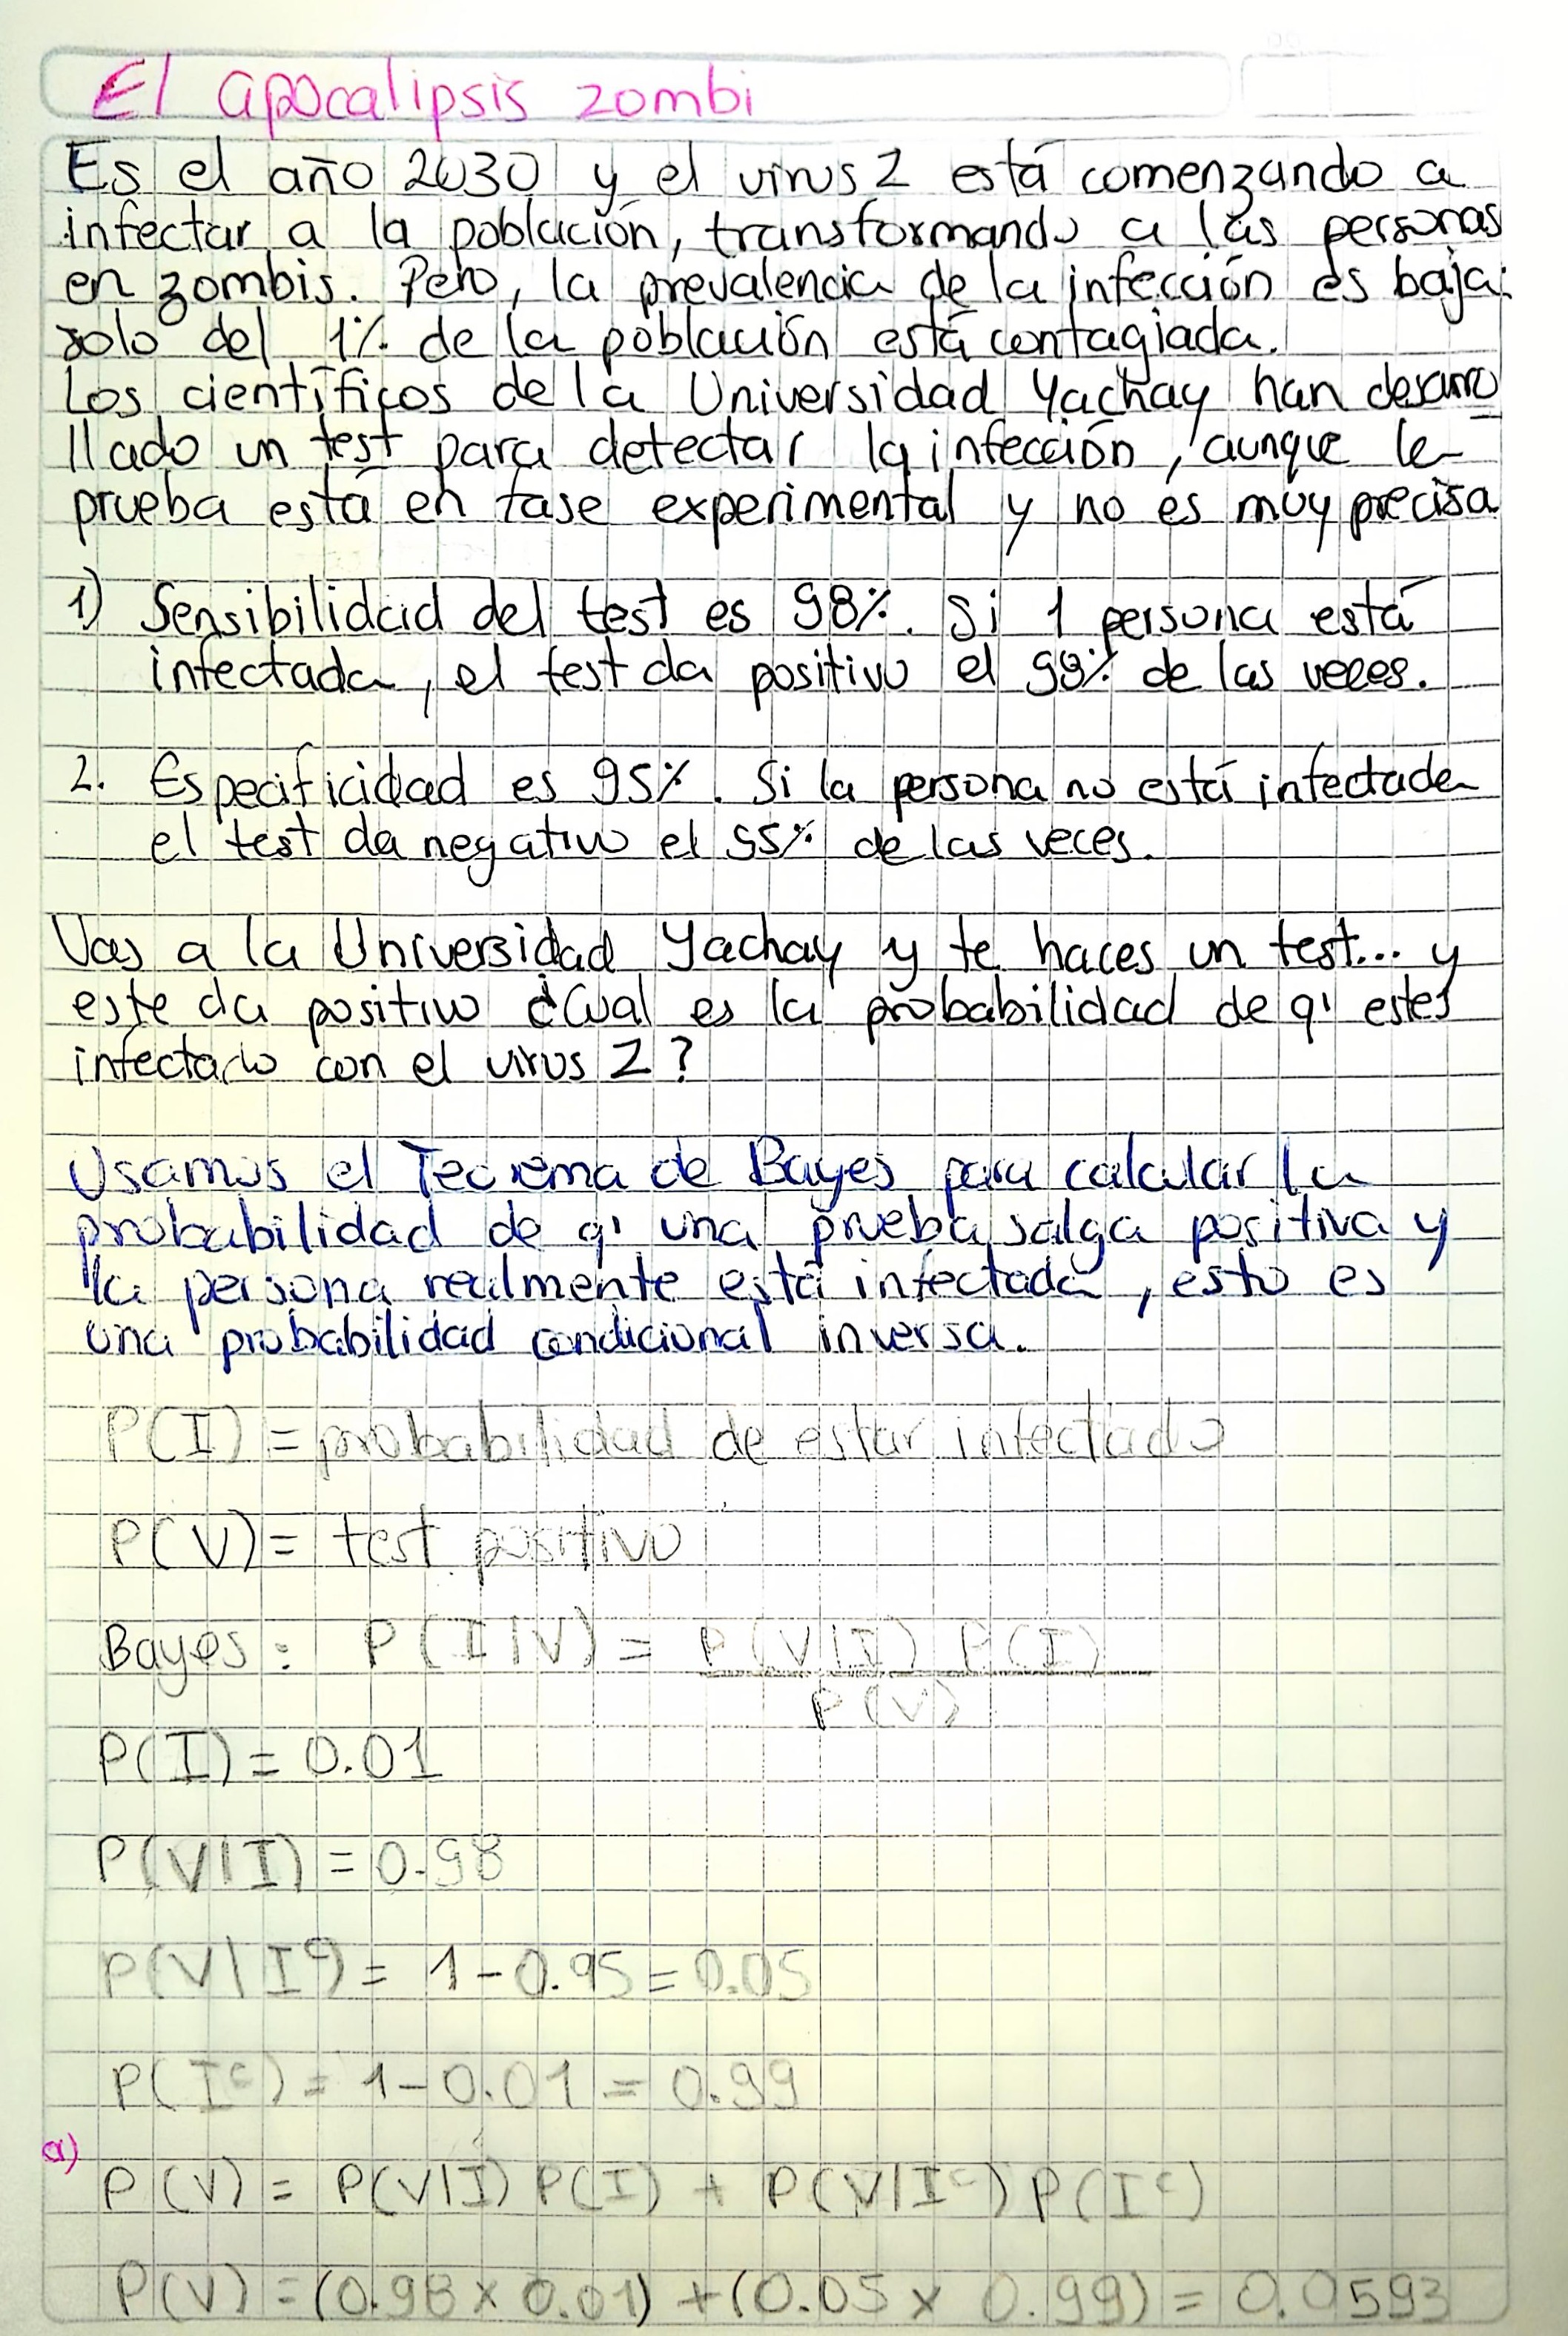 El apocalipsis zombi
Es el año 2030 y el virus Z está comenzando a
infectar a la población, transformando a las personas
en zombis. Pero, la prevalencia de la infección es baja:
solo del 1% de la población está contagiada.
Los científicos de la Universidad Yachay han desarro
llado un test para detectar la infección, aunque la
prueba está en fase experimental y no es muy precisa
1) Sensibilidad del test es 98%. Si 1 persona está
infectada, el test da positivo el 98% de las veces.
2. Especificidad es 95%. Si la persona no está infectada
el test da negativo el 95% de las veces.
Vas a la Universidad Yachay y te haces un test... y
este da positivo ¿Cual es la probabilidad de q' estes
infectado con el virus Z?
Usamos el Teorema de Bayes para calcular la
probabilidad de q' una prueba salga positiva y
la persona realmente está infectada, esto es
una probabilidad condicional inversa.
P(I) = probabilidad de estar infectado
P(V) = test positivo
Bayes: P(I|V) = P(V|I) P(I)
P(V)
P(I) = 0.01
P(V|I) = 0.98
P(V|Iᶜ) = 1 - 0.95 = 0.05
P(Iᶜ) = 1 - 0.01 = 0.99
a)
P(V) = P(V|I) P(I) + P(V|Iᶜ) P(Iᶜ)
P(V) = (0.98 x 0.01) + (0.05 x 0.99) = 0.0593